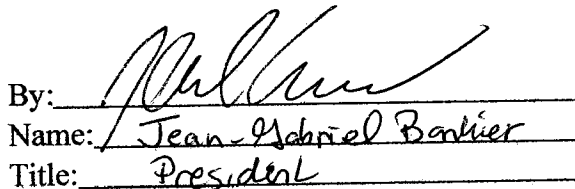 By:
Name: Jean-Gabriel Bankier
Title: President